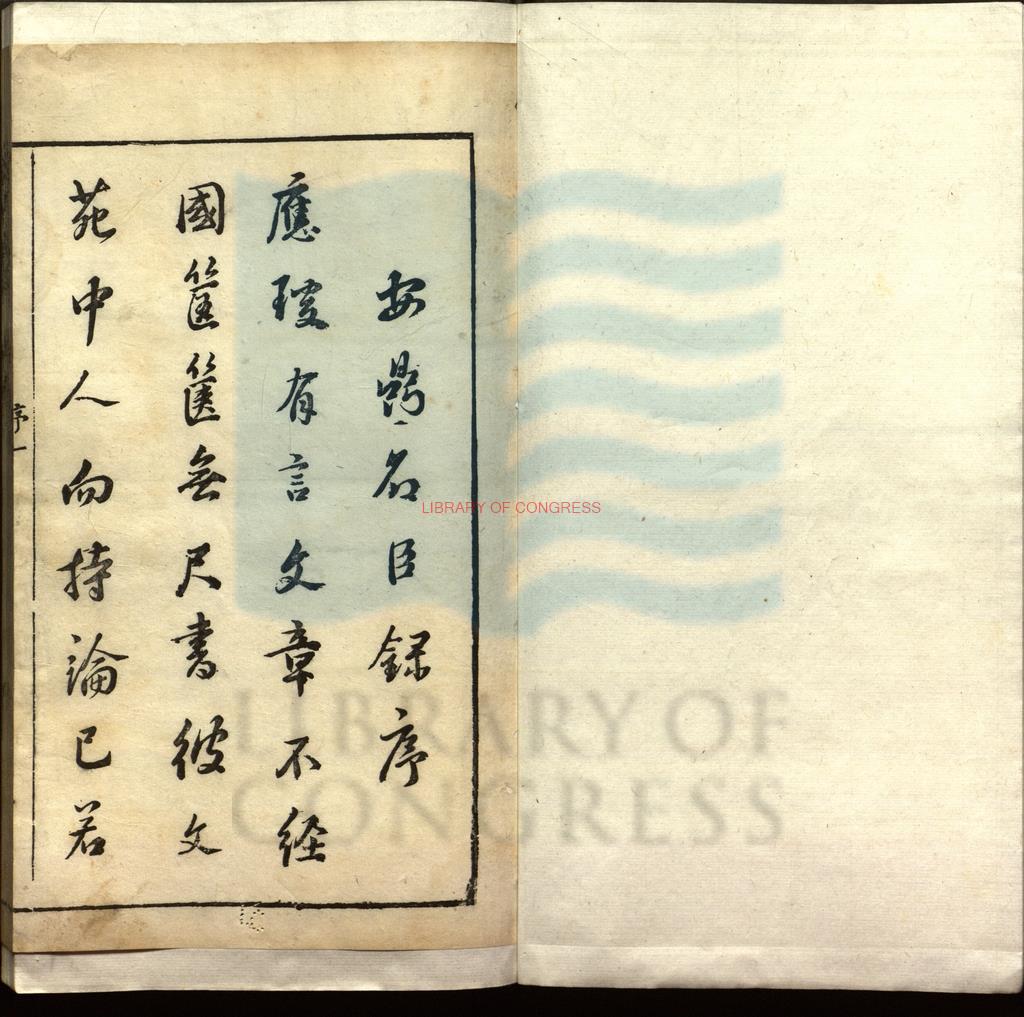 安名臣録序
應璩有言文章不經
國筐篋無尺書彼文
苑中人向持論已若
序一
LIBRARY OF CONGRESS
LIBRARY OF
CONGRESS